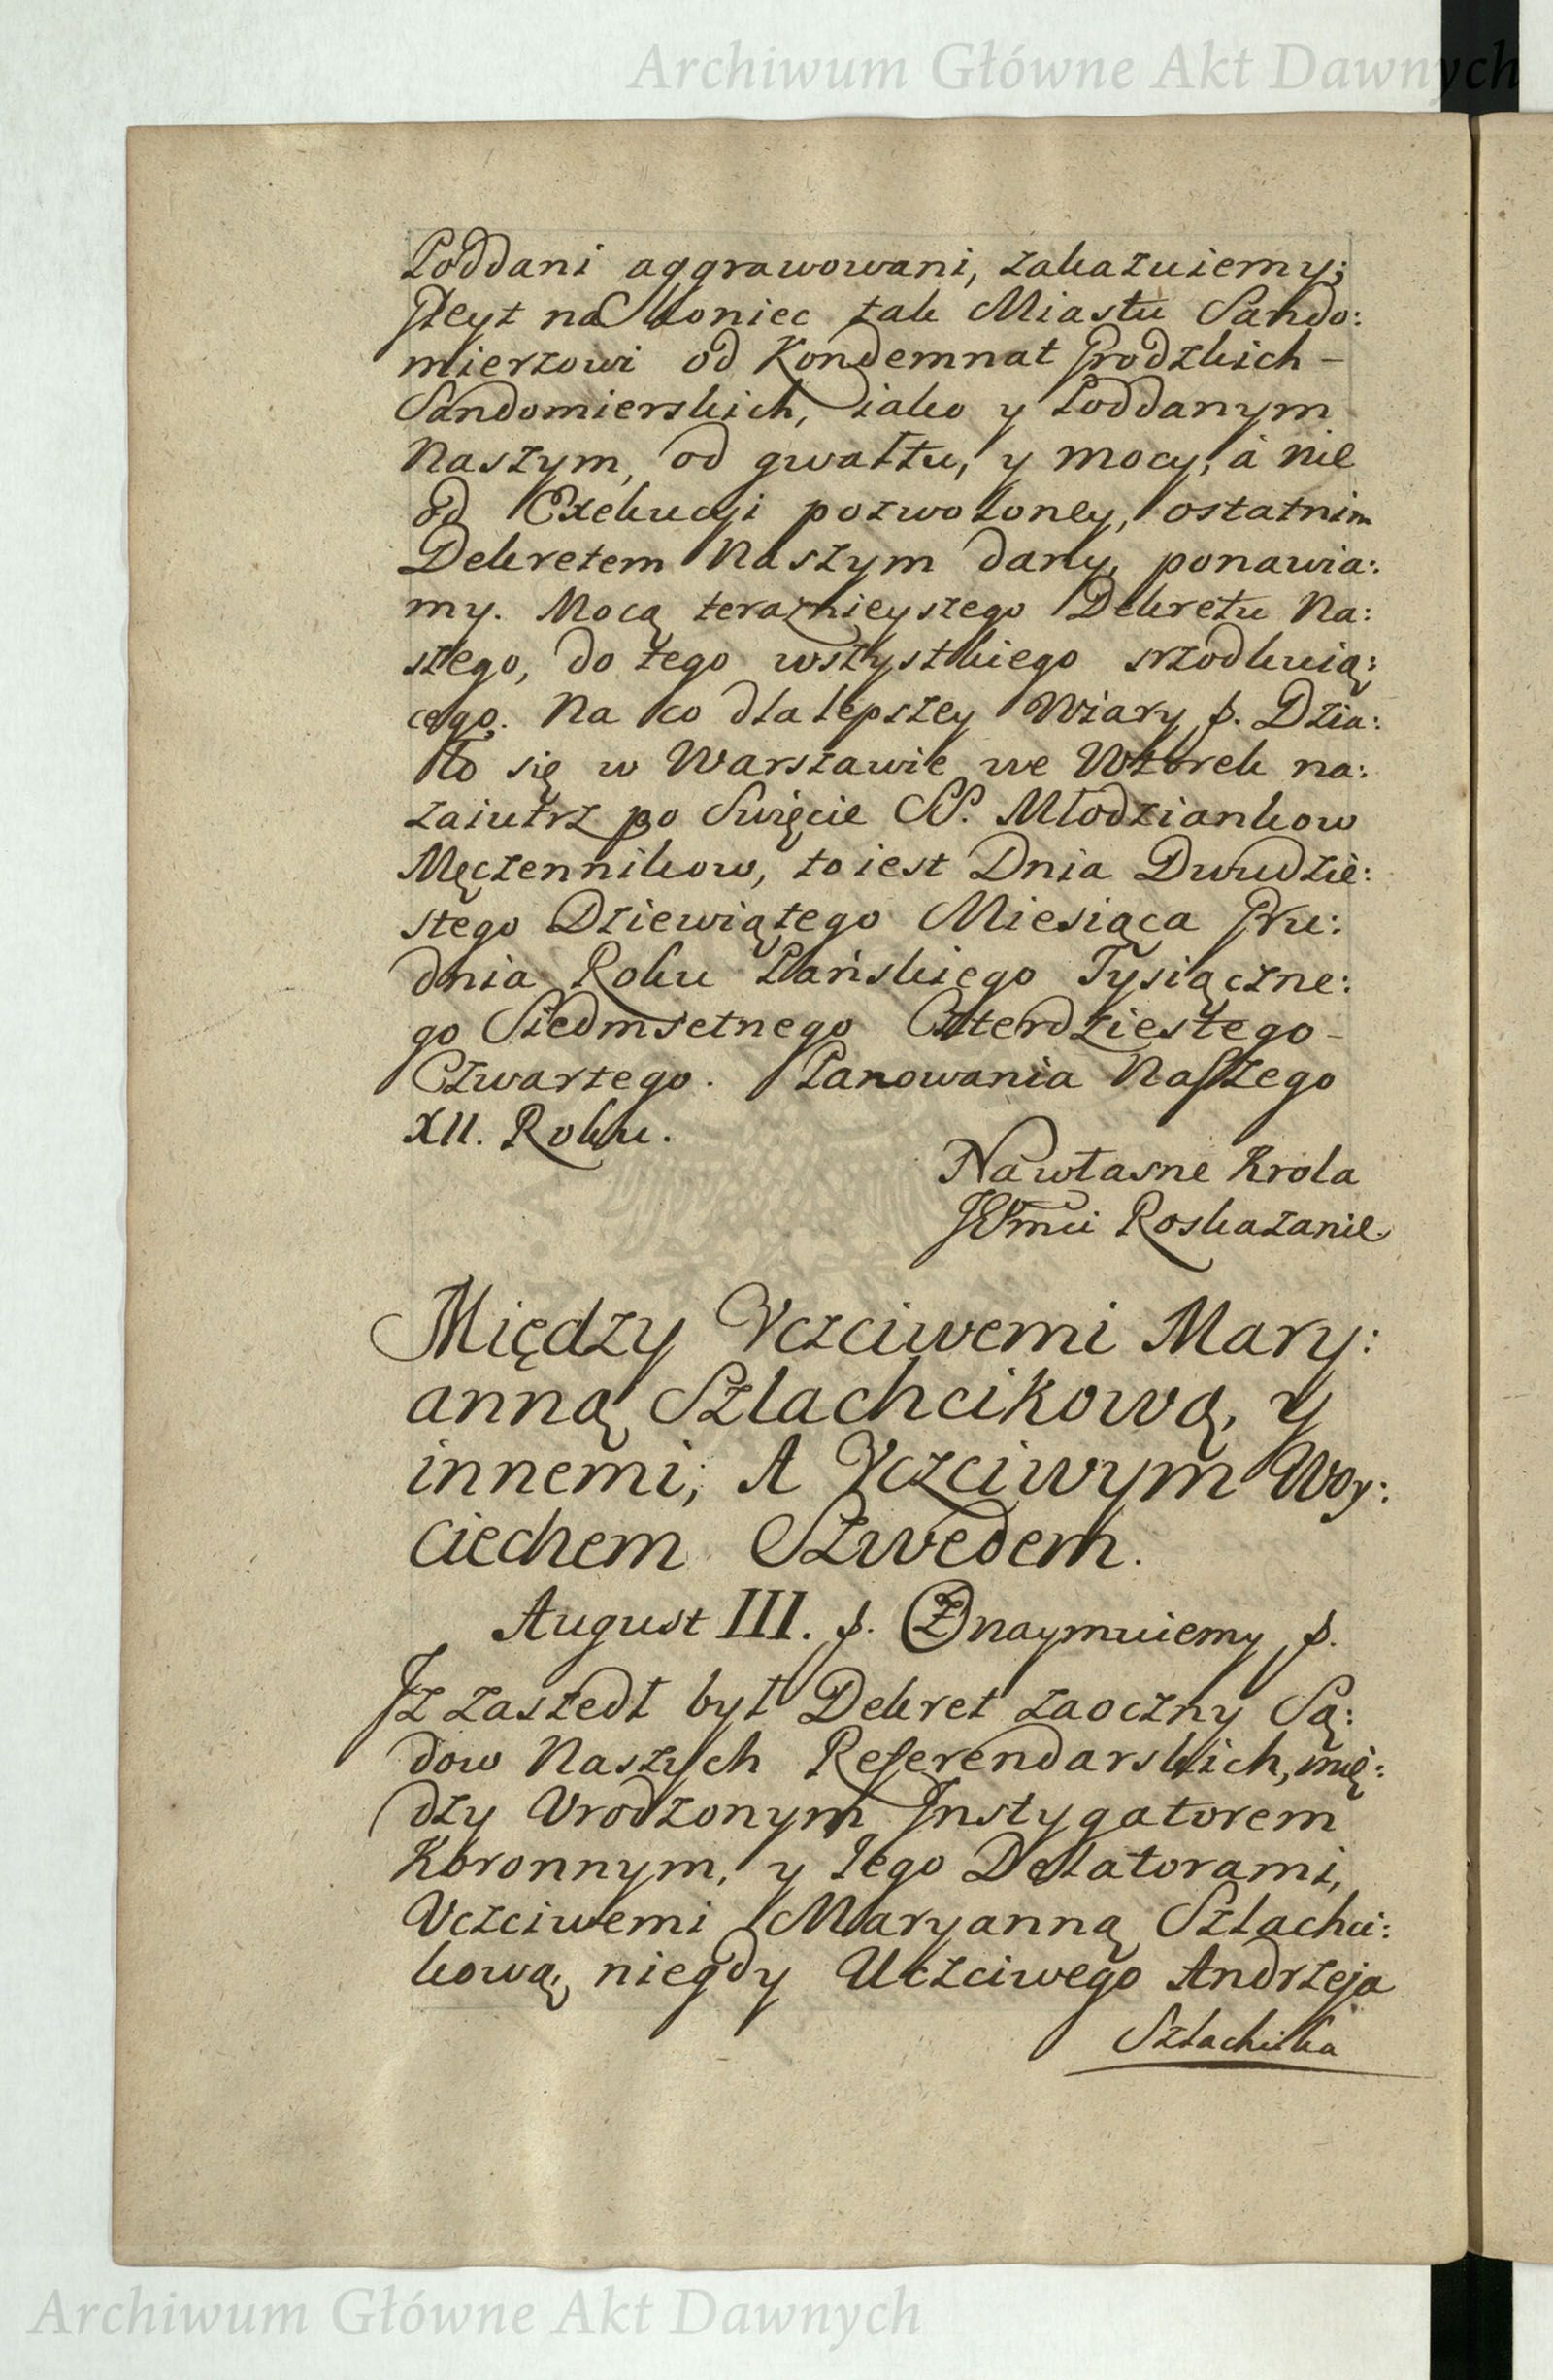 Archiwum Główne Akt Dawnych
Poddani aggrawowani, zakazuiemy;
Gleyt na koniec tak Miastu Sando:
mierzowi od Kondemnat Grodzkich –
Sandomierskich, iako y Poddanym
Naszym, od gwałtu, y mocy, à nie
od Exekucyi pozwoloney, ostatnim
Dekretem Naszym dany, ponawia:
my. Mocą teraznieyszego Dekretu Na:
szego, do tego wszystkiego srzodkuią:
cego. Na co dla lepszey Wiary p. Dzia:
ło się w Warszawie we Wtorek na:
zaiutrz po Swięcie SS. Młodziankow
Męczennikow, to iest Dnia Dwudzie:
stego Dziewiątego Miesiąca Gru:
dnia Roku Pańskiego Tysiączne:
go Siedmsetnego Czterdziestego –
Czwartego. Panowania Naszego
XII. Roku.
Na własne Krola
JEmci Roskazanie.
Między Vczciwemi Mary:
anną Szlachcikową, y
innemi; A Vczciwym Woy:
ciechem Szwedem.
August III. p. Oznaymuiemy, p.
Jż zaszedł był Dekret zaoczny Są:
dow Naszych Referendarskich, mię:
dzy Vrodzonym Jnstygatorem
Koronnym, y Iego Delatorami,
Vczciwemi Maryanną Szlachci:
kową, niegdy Uczciwego Andrzeja
Szlachcika
Archiwum Główne Akt Dawnych